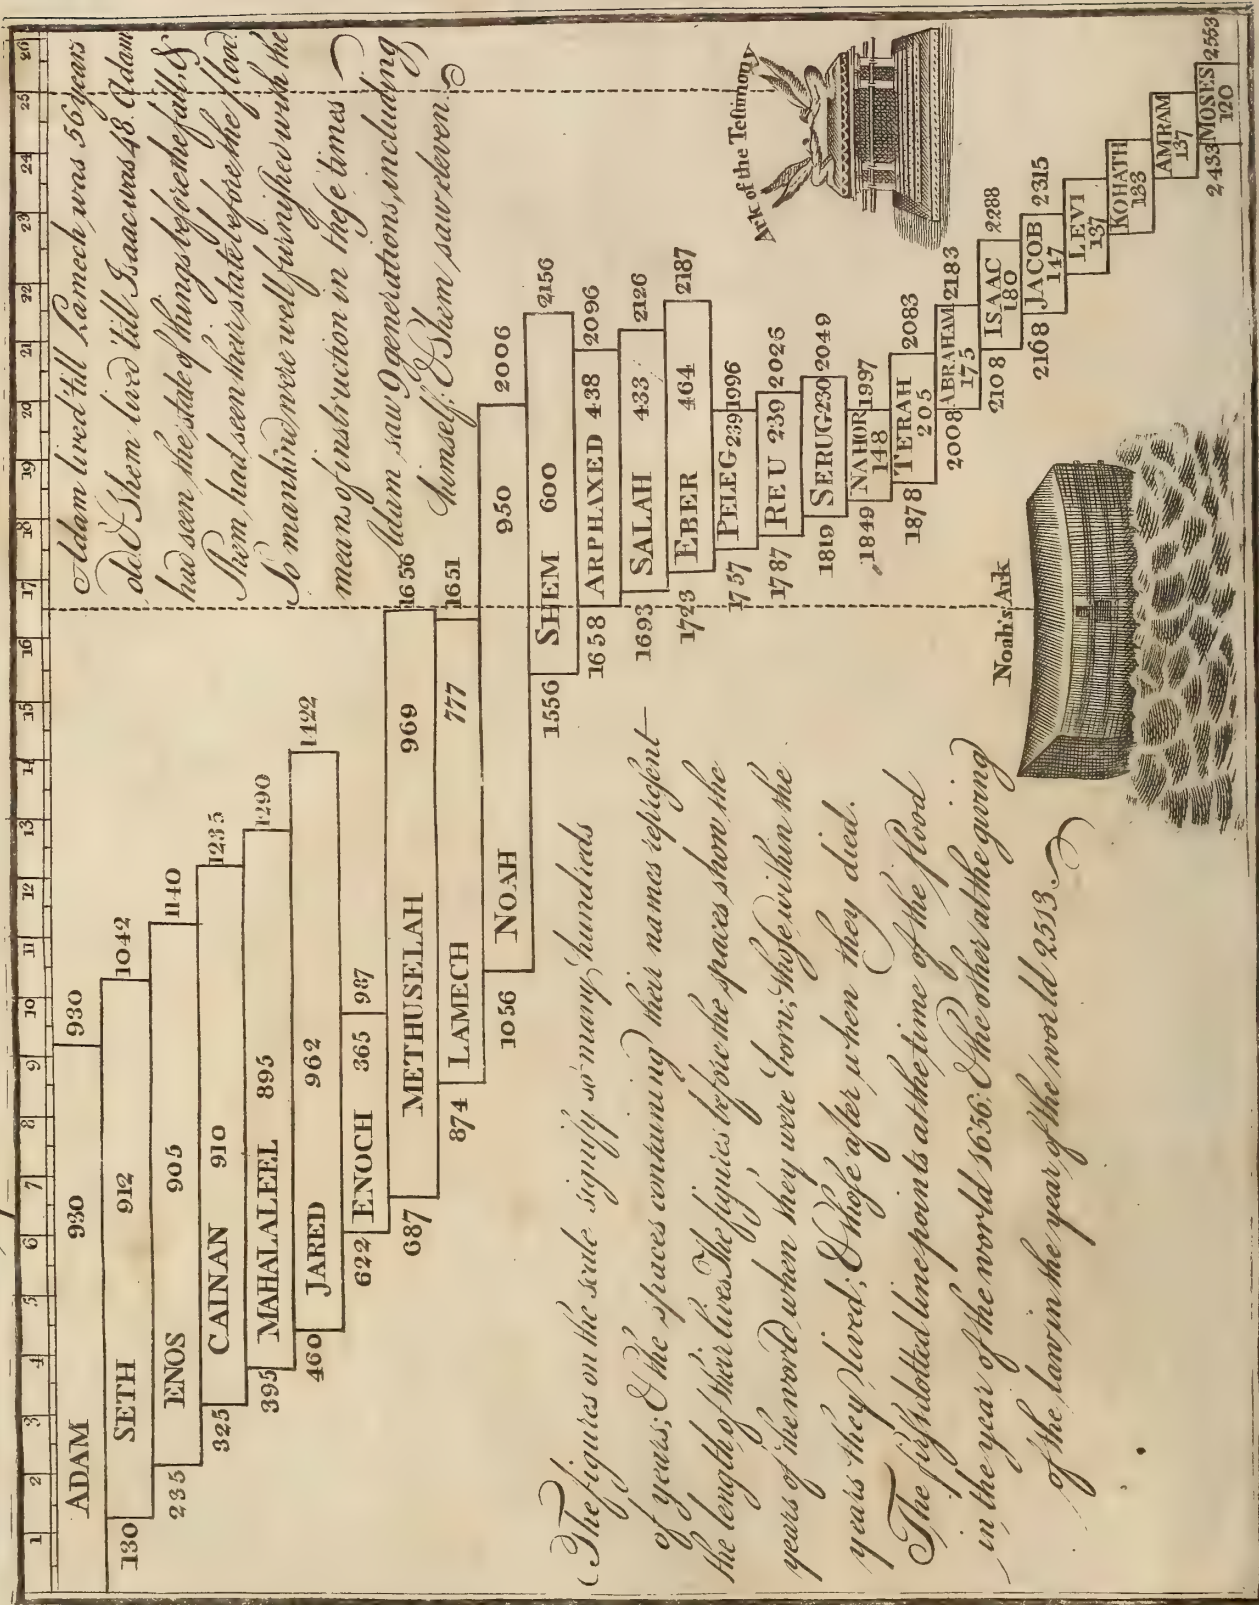 1 2 3 4 5 6 7 8 9 10 11 12 13 14 15 16 17 18 19 20 21 22 23 24 25 26
ADAM 930 930
130 SETH 912 1042
235 ENOS 905 1140
325 CAINAN 910 1235
395 MAHALALEEL 895 1290
460 JARED 962 1422
622 ENOCH 365 987
687 METHUSELAH 969 1656
874 LAMECH 777 1651
1056 NOAH 950 2006
1556 SHEM 600 2156
1658 ARPHAXED 438 2096
1693 SALAH 433 2126
1723 EBER 464 2187
1757 PELEG 239 1996
1787 REU 239 2026
1819 SERUG 230 2049
1849 NAHOR 148 1997
1878 TERAH 205 2083
2008 ABRAHAM 175 2183
2108 ISAAC 180 2288
2168 JACOB 147 2315
LEVI 137
KOHATH 133
AMRAM 137
2433 MOSES 120 2553
Adam lived till Lamech was 56 years
old. & Shem lived 'till Isaac was 48. Adam
had seen the state of things before the fall, &
Shem, had seen their state before the flood.
So mankind were well furnished with the
means of instruction in these times
Adam saw 9 generations, including
himself: & Shem saw eleven.
The figures on the scale signify so many hundreds
of years; & the spaces containing their names represent
the length of their lives. The figures before the spaces show the
years of the world when they were born; those within the
years they lived; & those after when they died.
The first dotted line points at the time of the flood
in the year of the world 1656: & the other at the giving
of the law in the year of the world 2513.
Ark of the Testimony
Noah's Ark